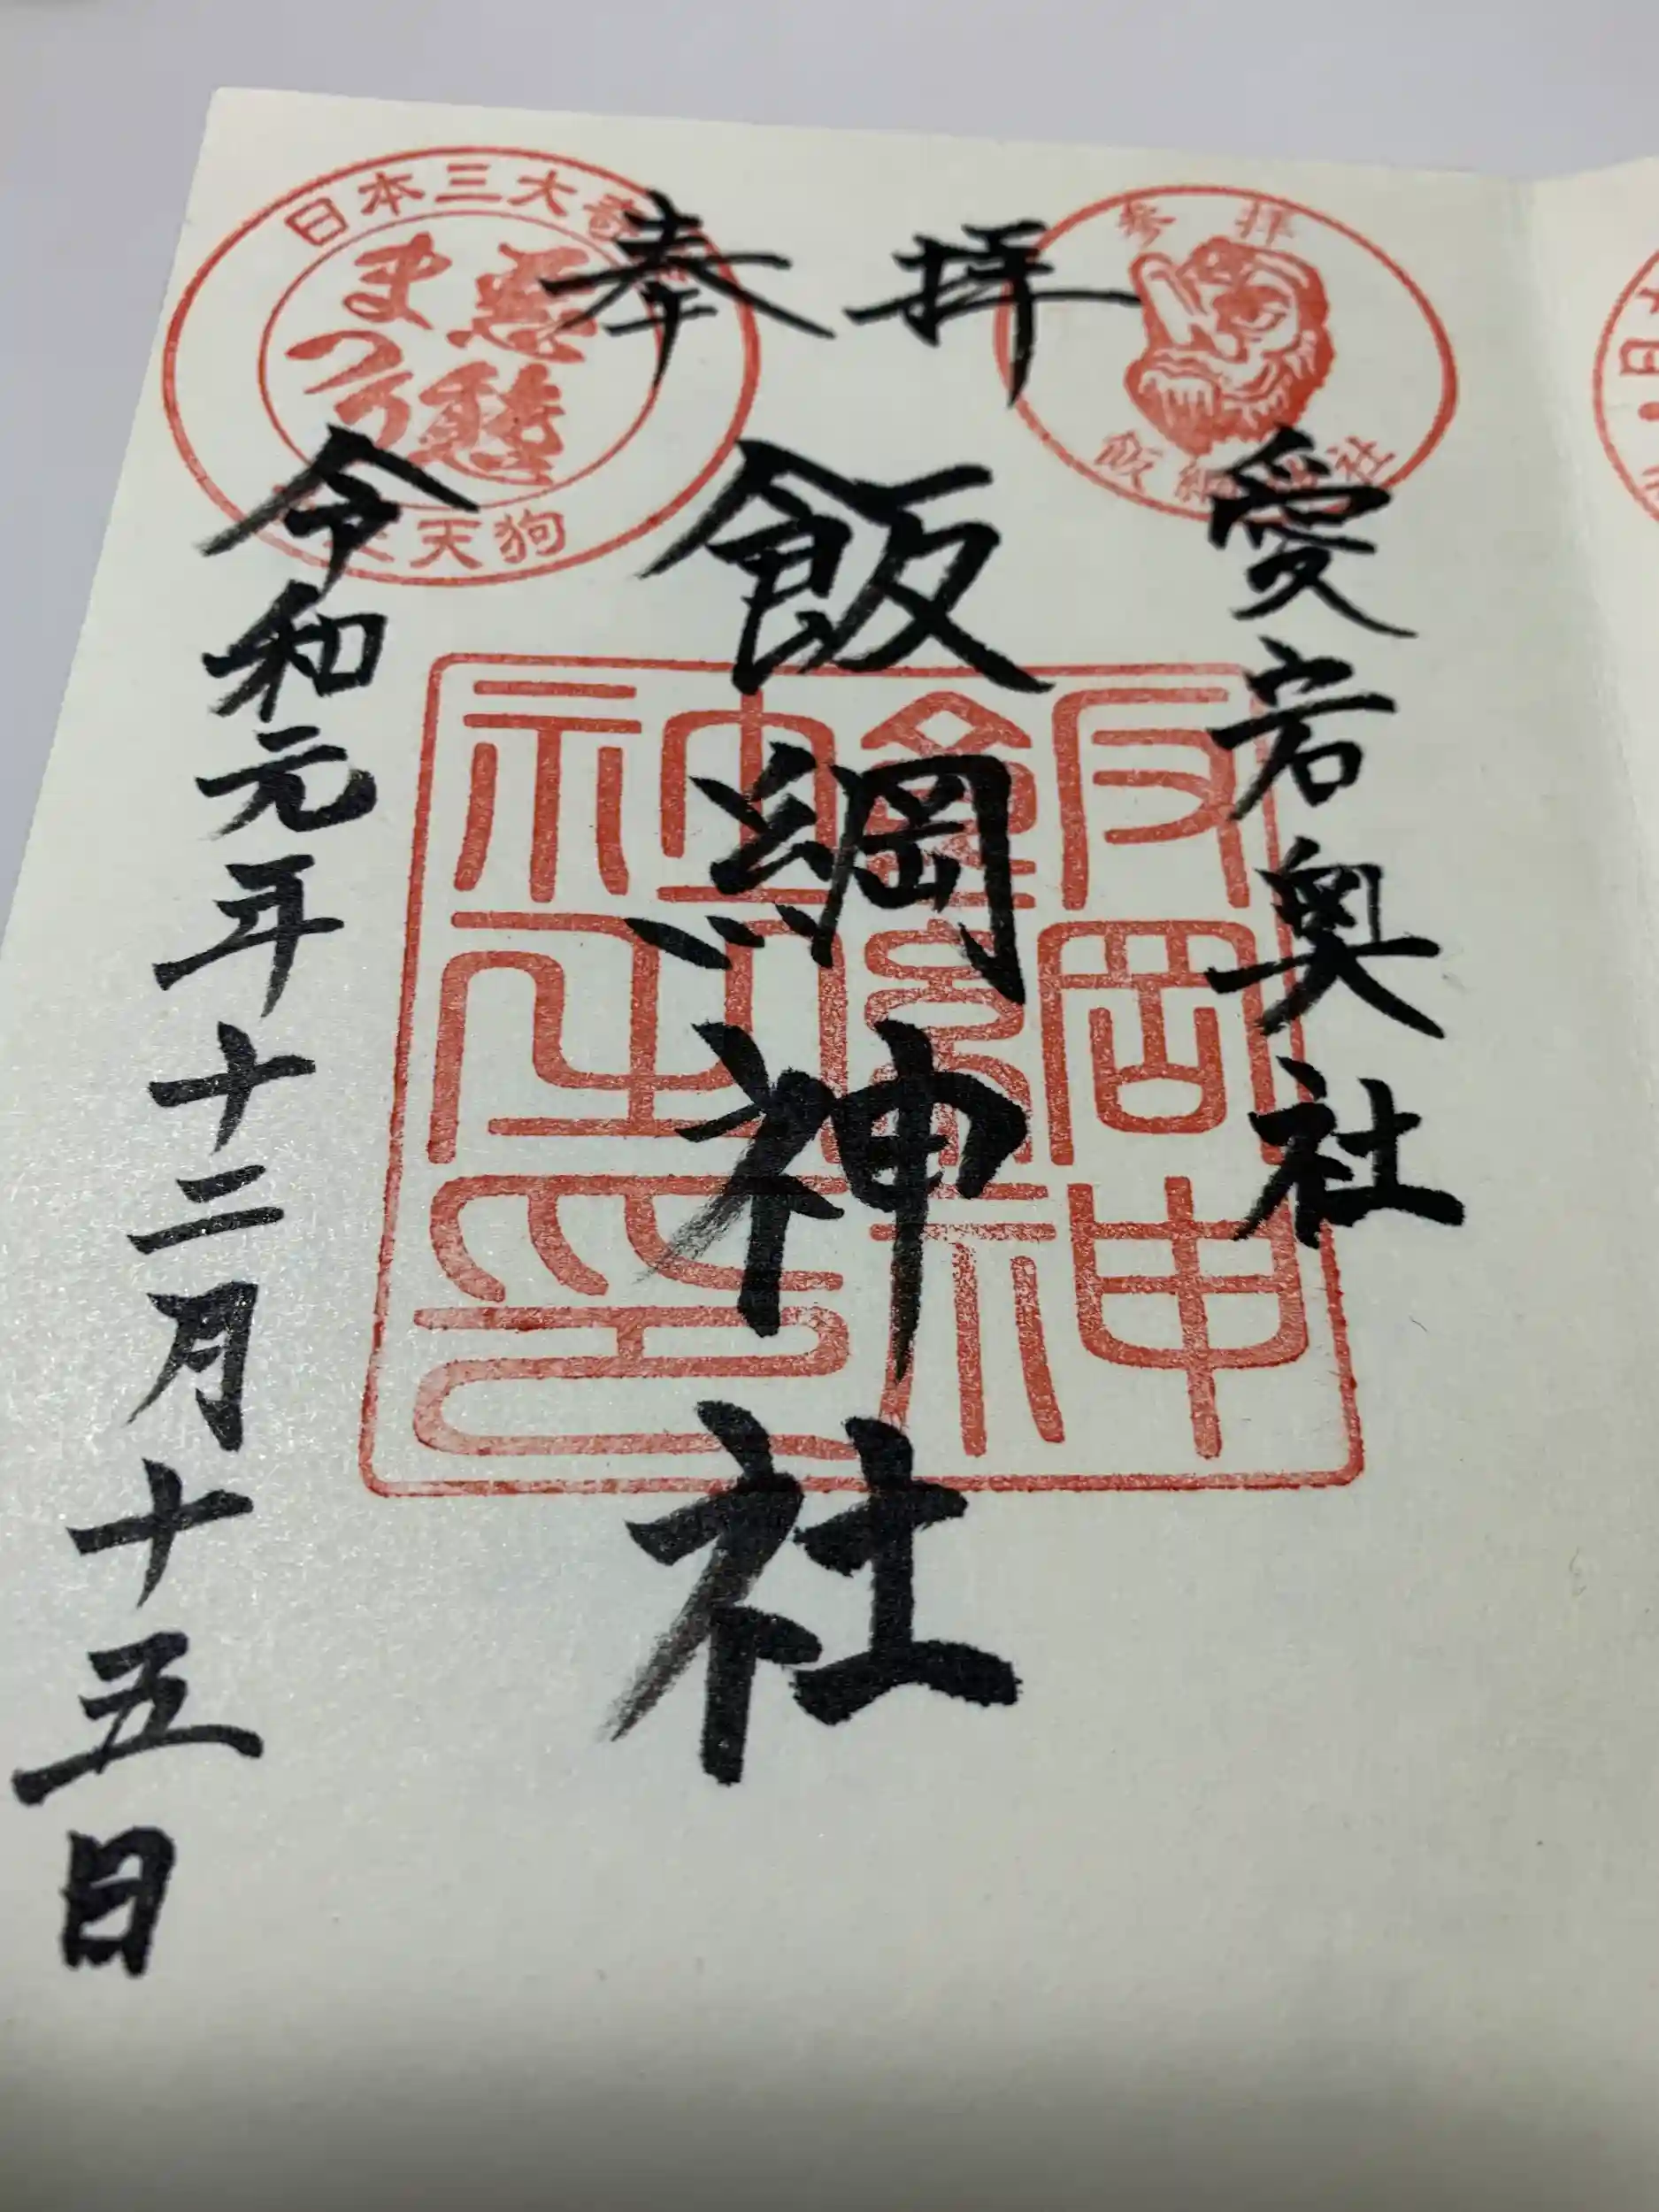 奉拝
愛宕奥社
飯綱神社
令和元年十二月十五日
日本三大
悪態
まつり
天狗
参拝
飯綱 社
飯綱神
神 印